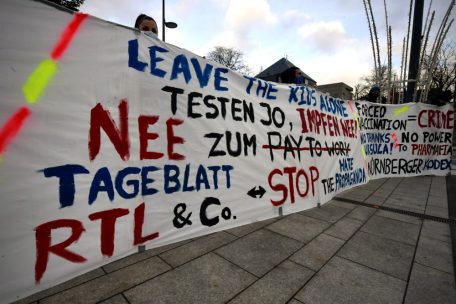 LEAVE THE KIDS ALONE
TESTEN JO, IMPFEN NEE!
NEE ZUM PAY TO WORK
TAGEBLATT
RTL & Co. ↔ STOP
THE HATE
PROPAGANDA
FORCED
VACCINATION = CRIME
THANKS
URSULA!
NO POWER
TO PHARMAFIA
NÜRNBERGER KODEX